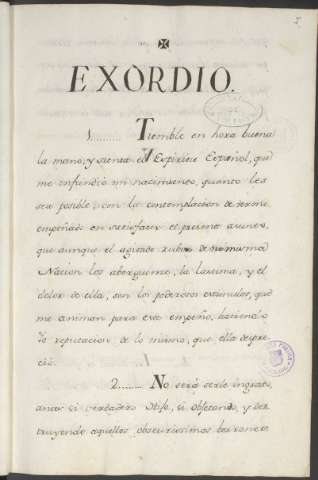 EXORDIO.
1........ Tiemble en hora buena
la mano, y sienta el Espiritu Español, que
me infundió mi nacimiento, quanto les
sea posible, con la contemplacion de verme
empeñado en satisfacer el presente asunto,
que aunque el agiando rubor de mi misma
Nacion los aberguenze, la lastima, y el
dolor de ella, son los poderosos estimulos, que
me animan para este empeño, haciendo
Yo reputacion de lo mismo, que ella despre-
ció.
2........ No será serle ingrato,
antes si verdadero Hijo, si objetando, y des-
truyendo aquellos obscurissimos borrones